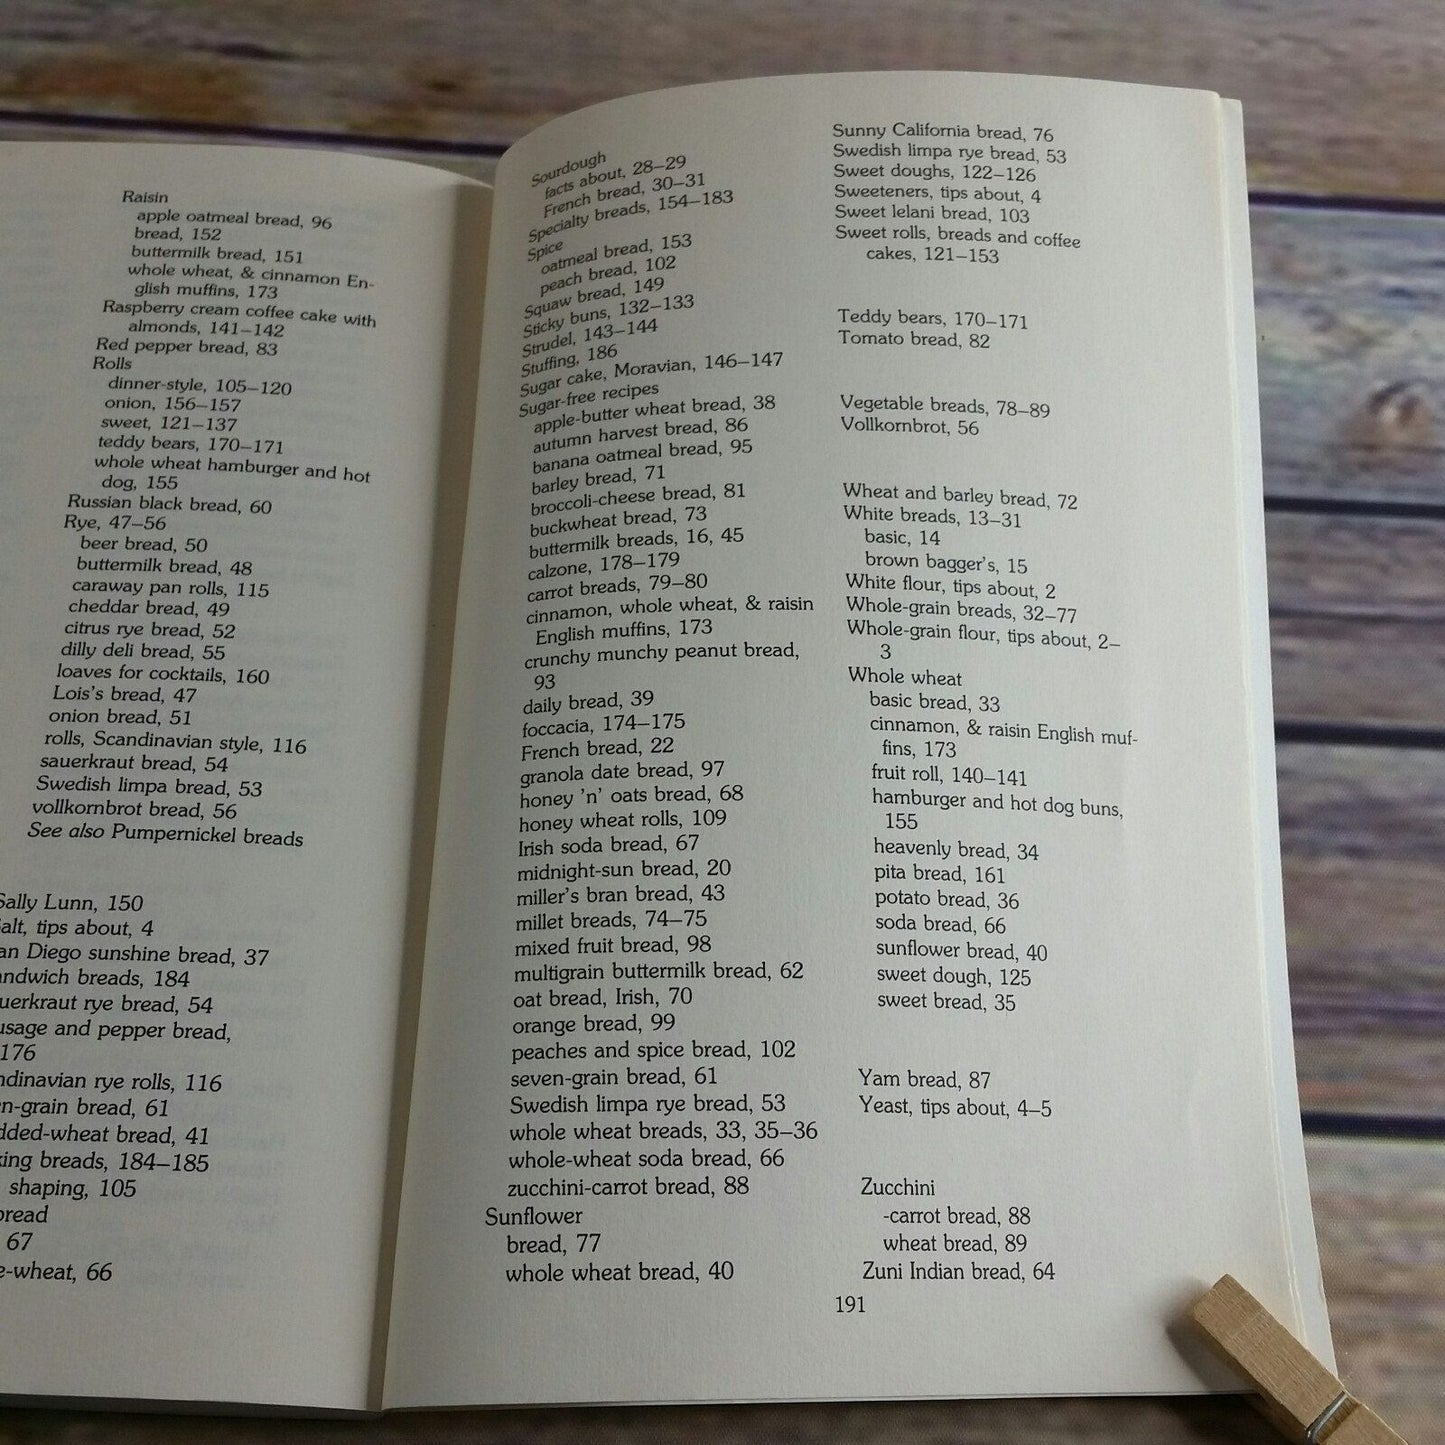 Raisin
apple oatmeal bread, 96
bread, 152
buttermilk bread, 151
whole wheat, & cinnamon En-
glish muffins, 173
Raspberry cream coffee cake with
almonds, 141–142
Red pepper bread, 83
Rolls
dinner-style, 105–120
onion, 156–157
sweet, 121–137
teddy bears, 170–171
whole wheat hamburger and hot
dog, 155
Russian black bread, 60
Rye, 47–56
beer bread, 50
buttermilk bread, 48
caraway pan rolls, 115
cheddar bread, 49
citrus rye bread, 52
dilly deli bread, 55
loaves for cocktails, 160
Lois's bread, 47
onion bread, 51
rolls, Scandinavian style, 116
sauerkraut bread, 54
Swedish limpa bread, 53
vollkornbrot bread, 56
See also Pumpernickel breads
Sally Lunn, 150
alt, tips about, 4
an Diego sunshine bread, 37
andwich breads, 184
uerkraut rye bread, 54
usage and pepper bread,
176
ndinavian rye rolls, 116
n-grain bread, 61
dded-wheat bread, 41
king breads, 184–185
shaping, 105
bread
67
e-wheat, 66
Sourdough
facts about, 28–29
French bread, 30–31
Specialty breads, 154–183
Spice
oatmeal bread, 153
peach bread, 102
Squaw bread, 149
Sticky buns, 132–133
Strudel, 143–144
Stuffing, 186
Sugar cake, Moravian, 146–147
Sugar-free recipes
apple-butter wheat bread, 38
autumn harvest bread, 86
banana oatmeal bread, 95
barley bread, 71
broccoli-cheese bread, 81
buckwheat bread, 73
buttermilk breads, 16, 45
calzone, 178–179
carrot breads, 79–80
cinnamon, whole wheat, & raisin
English muffins, 173
crunchy munchy peanut bread,
93
daily bread, 39
foccacia, 174–175
French bread, 22
granola date bread, 97
honey 'n' oats bread, 68
honey wheat rolls, 109
Irish soda bread, 67
midnight-sun bread, 20
miller's bran bread, 43
millet breads, 74–75
mixed fruit bread, 98
multigrain buttermilk bread, 62
oat bread, Irish, 70
orange bread, 99
peaches and spice bread, 102
seven-grain bread, 61
Swedish limpa rye bread, 53
whole wheat breads, 33, 35–36
whole-wheat soda bread, 66
zucchini-carrot bread, 88
Sunflower
bread, 77
whole wheat bread, 40
Sunny California bread, 76
Swedish limpa rye bread, 53
Sweet doughs, 122–126
Sweeteners, tips about, 4
Sweet lelani bread, 103
Sweet rolls, breads and coffee
cakes, 121–153
Teddy bears, 170–171
Tomato bread, 82
Vegetable breads, 78–89
Vollkornbrot, 56
Wheat and barley bread, 72
White breads, 13–31
basic, 14
brown bagger's, 15
White flour, tips about, 2
Whole-grain breads, 32–77
Whole-grain flour, tips about, 2–
3
Whole wheat
basic bread, 33
cinnamon, & raisin English muf-
fins, 173
fruit roll, 140–141
hamburger and hot dog buns,
155
heavenly bread, 34
pita bread, 161
potato bread, 36
soda bread, 66
sunflower bread, 40
sweet dough, 125
sweet bread, 35
Yam bread, 87
Yeast, tips about, 4–5
Zucchini
-carrot bread, 88
wheat bread, 89
Zuni Indian bread, 64
191